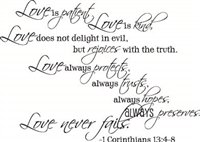 Love is patient
Love is kind,
Love does not delight in evil,
but rejoices with the truth.
Love always protects,
always trusts,
always hopes,
always preserves.
Love never fails.
-1 Corinthians 13:4-8